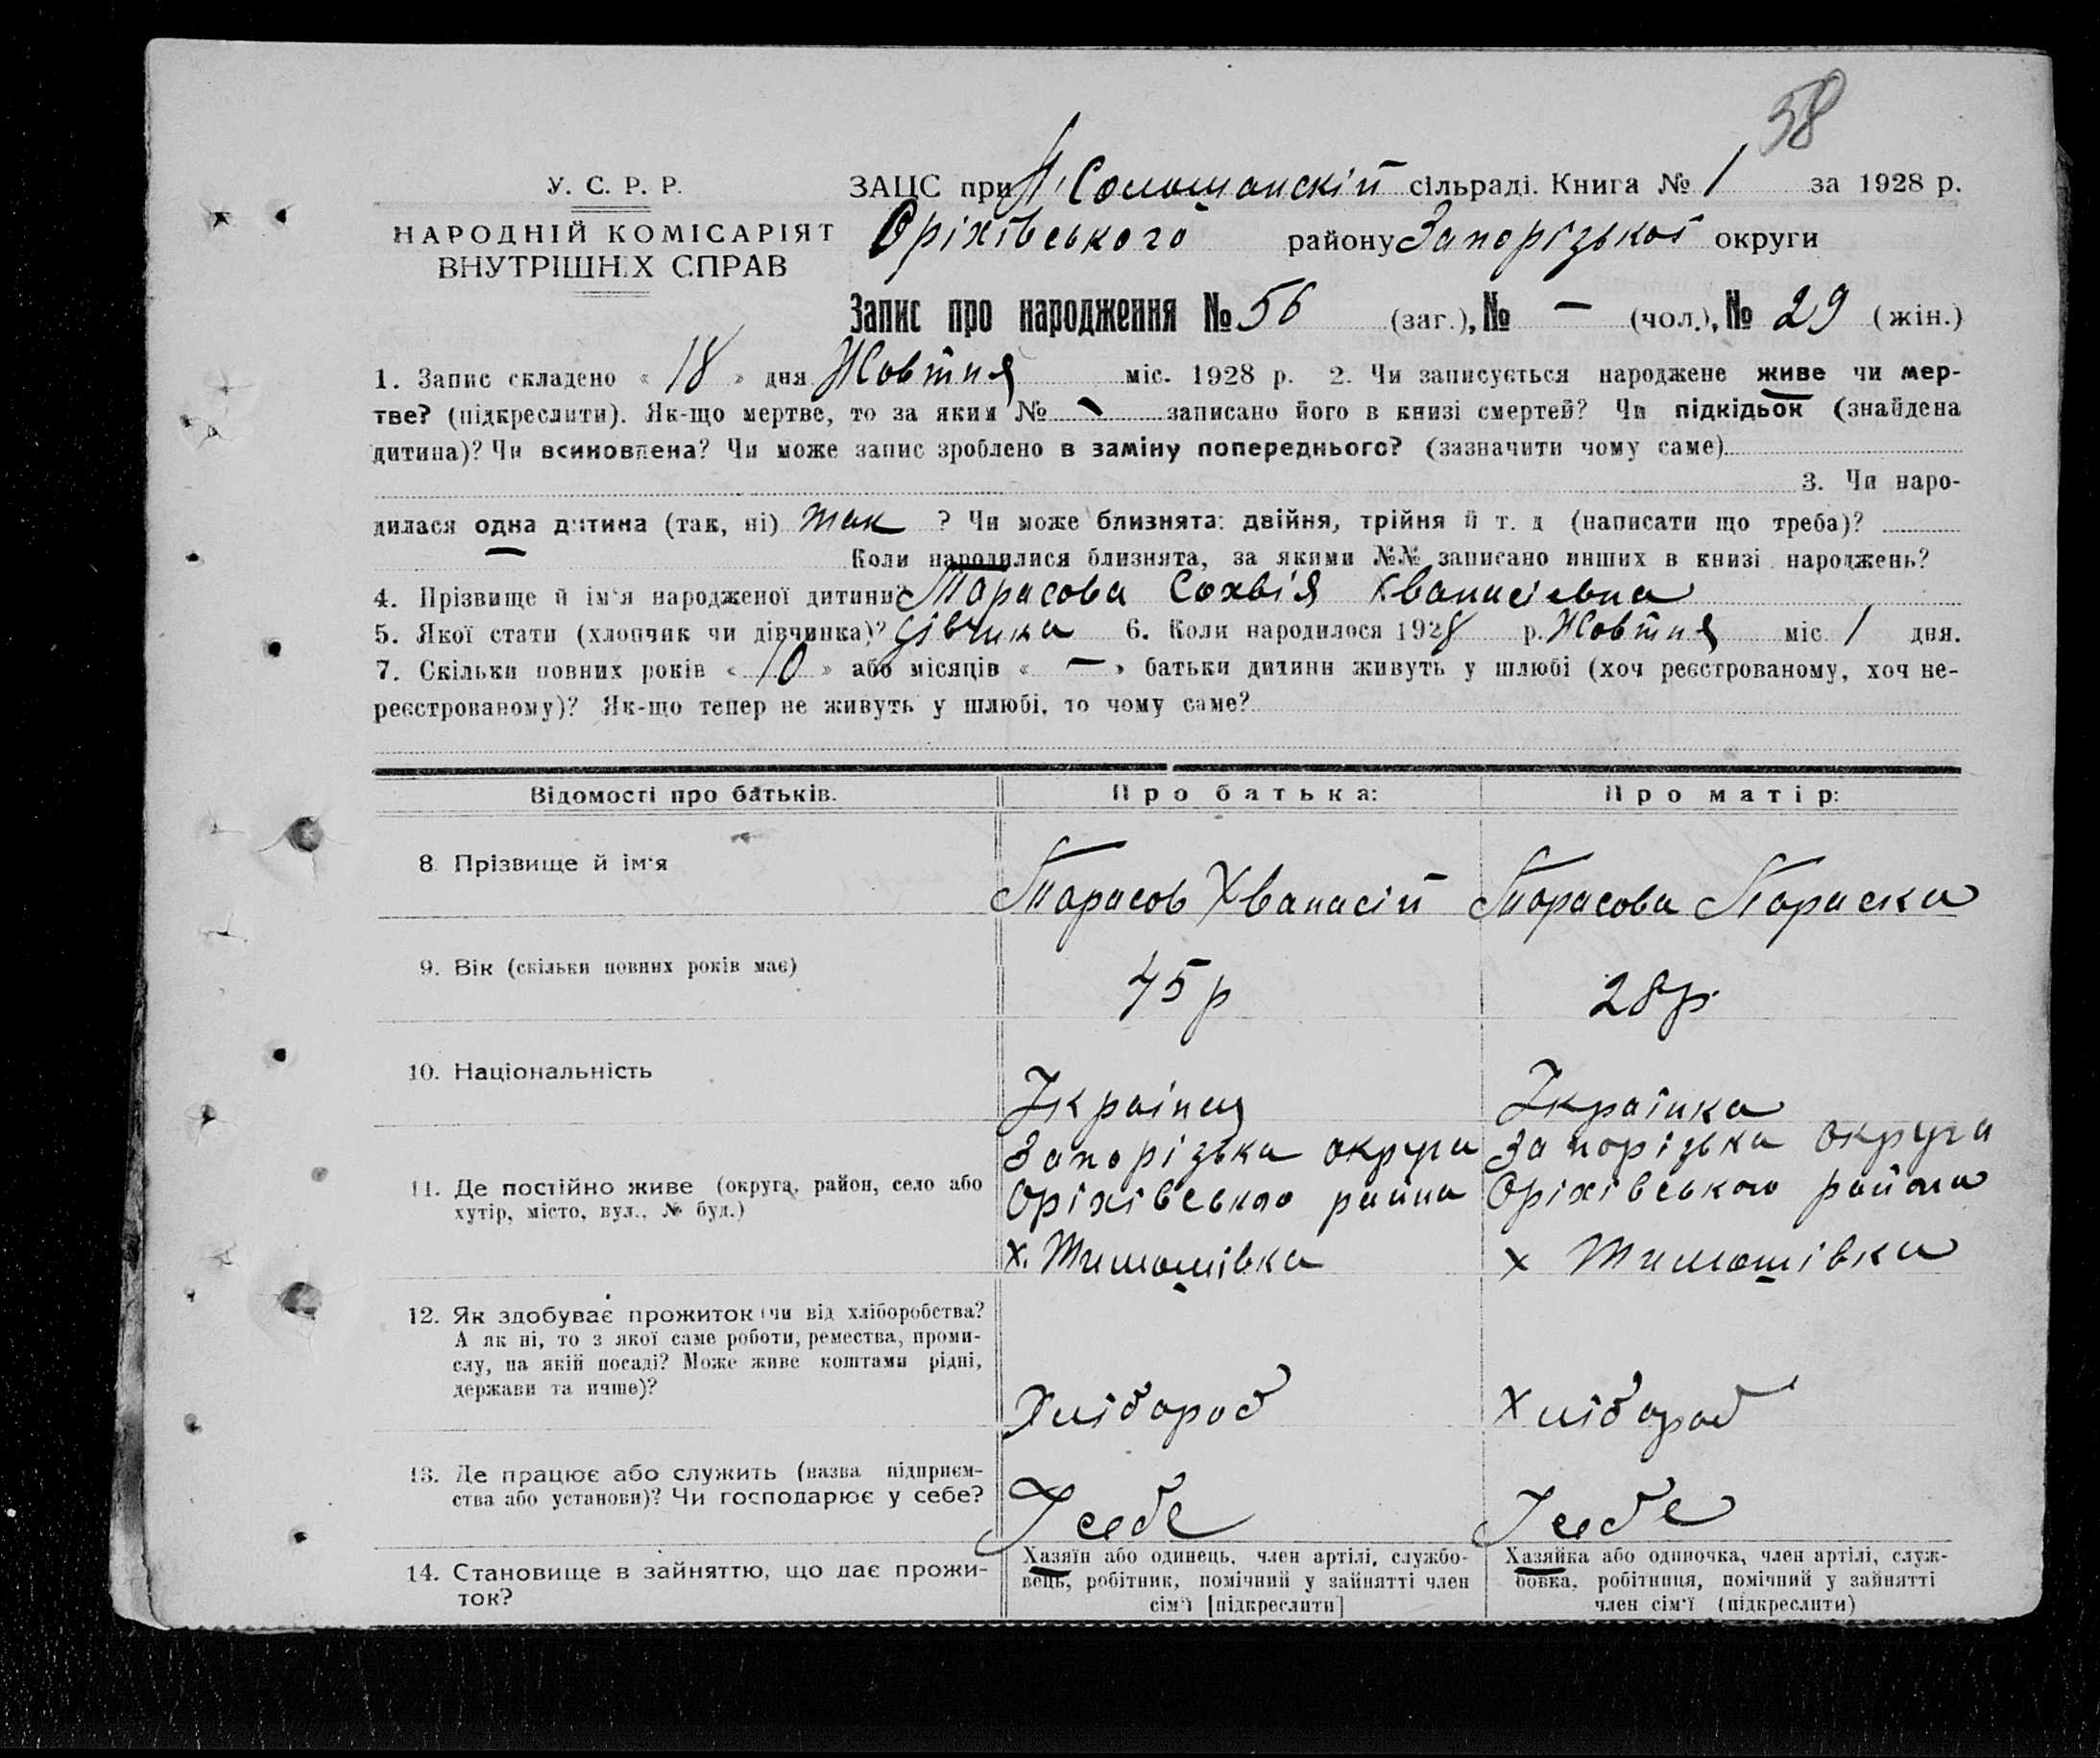 58
У. С. Р. Р.
НАРОДНІЙ КОМІСАРІЯТ
ВНУТРІШНІХ СПРАВ
ЗАЦС при сільраді. Книга № 1 за 1928 р.
Оріхівського району Запорізької округи
Запис про народження № 56 (заг.), № — (чол.), № 29 (жін.)
1. Запис складено « 18 » дня Жовтня міс. 1928 р. 2. Чи записується народжене живе чи мер-
тве? (підкреслити). Як-що мертве, то за яким № записано його в книзі смертей? Чи підкідьок (знайдена
дитина)? Чи всиновлена? Чи може запис зроблено в заміну попереднього? (зазначити чому саме)
3. Чи наро-
дилася одна дитина (так, ні) так ? Чи може близнята: двійня, трійня й т. д (написати що треба)?
Коли народилися близнята, за якими №№ записано инших в книзі народжень?
4. Прізвище й ім‘я народженої дитини? Тарасова Сохвія Хванасієвна
5. Якої стати (хлопчик чи дівчинка)? дівчинка 6. Коли народилося 1928 р. Жовтня міс 1 дня.
7. Скільки повних років « 10 » або місяців « — » батьки дитини живуть у шлюбі (хоч реєстрованому, хоч не-
реєстрованому)? Як-що тепер не живуть у шлюбі, то чому саме?
Відомості про батьків. Про батька: Про матір:
8. Прізвище й ім‘я Тарасов Хванасій Тарасова Параска
9. Вік (скільки повних років має) 45 р 28 р.
10. Національність Україпец Українка
11. Де постійно живе (округа, район, село або
хутір, місто, вул., № буд.)
Запорізька округа Запорізька округа
Оріхівського района Оріхівського района
х. Тимошівка х Тимошівка
12. Як здобуває прожиток (чи від хліборобства?
А як ні, то з якої саме роботи, ремества, проми-
слу, на якій посаді? Може живе коштами рідні,
держави та инше)?
Хлібороб Хлібороб
13. Де працює або служить (назва підприєм-
ства або установи)? Чи господарює у себе?
У себе У себе
14. Становище в зайняттю, що дає прожи-
ток?
Хазяїн або одинець, член артілі, службо-
вець, робітник, помічний у зайнятті член
сім‘ї [підкреслити]
Хазяйка або одиночка, член артілі, служ-
бовка, робітниця, помічний у зайнятті
член сім‘ї (підкреслити)